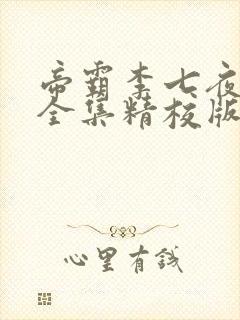 帝霸李七夜
全集精校版
心里有钱